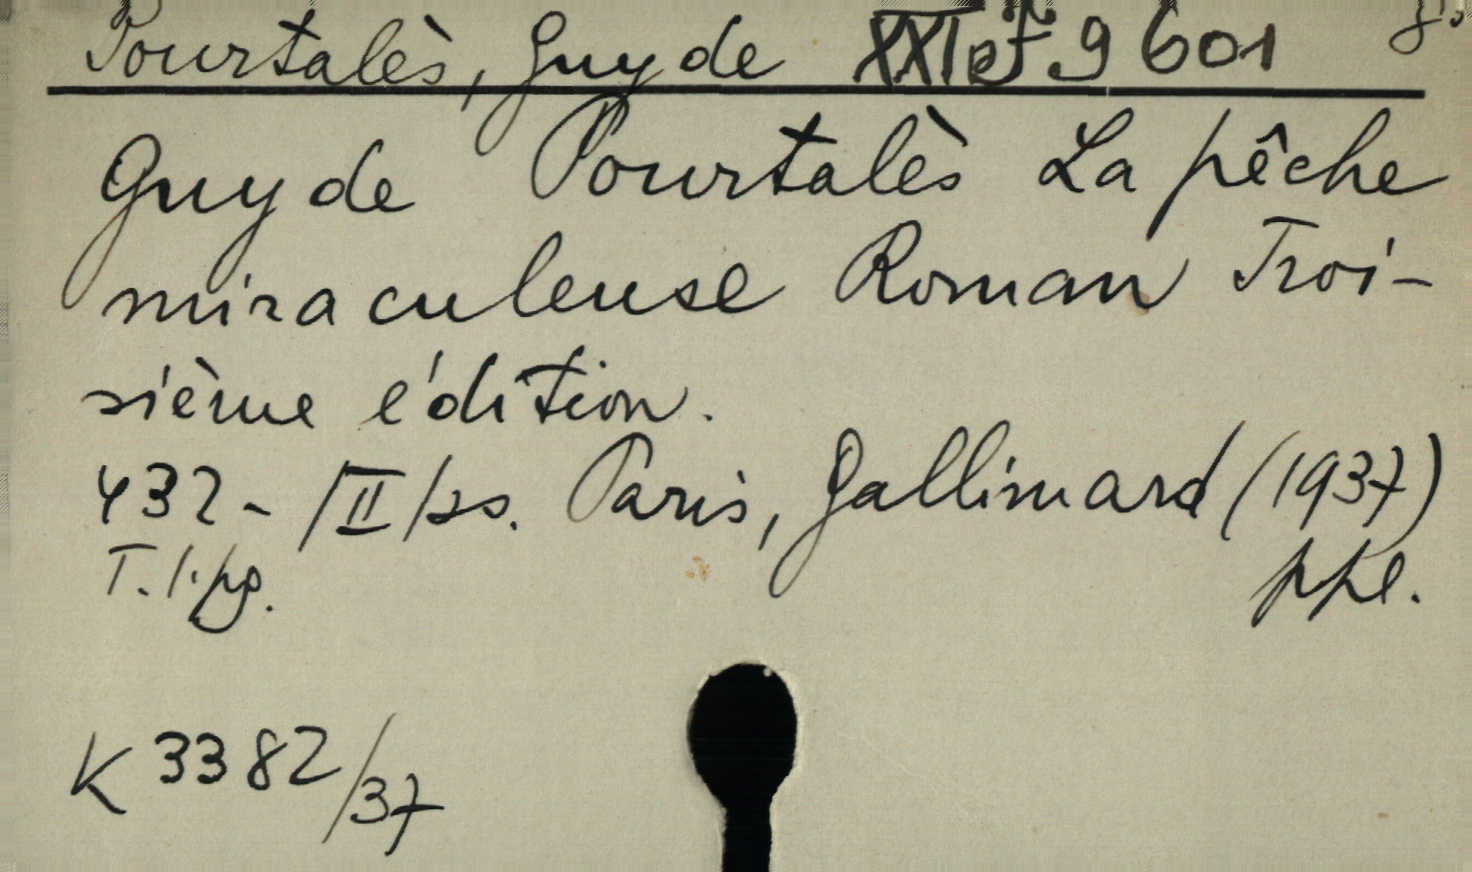 Pourtalès, Guy de XXI e F 9 601 8°
Guy de Pourtalès La pêche
miraculeuse Roman Troi-
sième édition.
432 - /II/ ss. Paris, Gallimard (1937)
T. l. pg. ppl.
K 3382/37